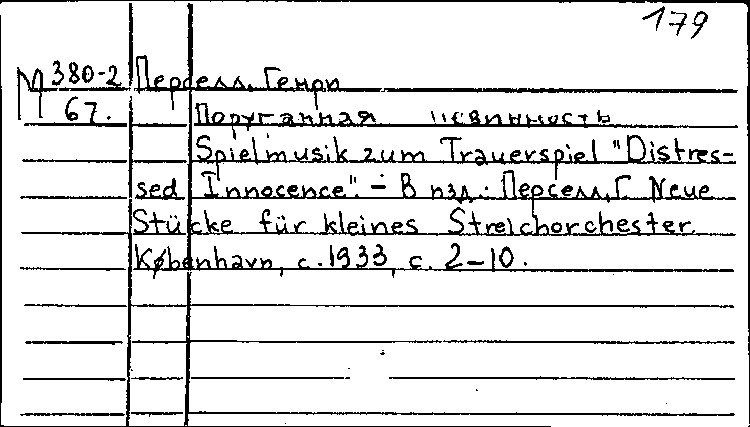 179
М 380-2 Перселл, Генри
67. Поруганная невинность
Spielmusik zum Trauerspiel "Distres-
sed Innocence". – В изд.: Перселл, Г. Neue
Stücke für kleines Streichorchester.
København, c. 1933, с. 2–10.